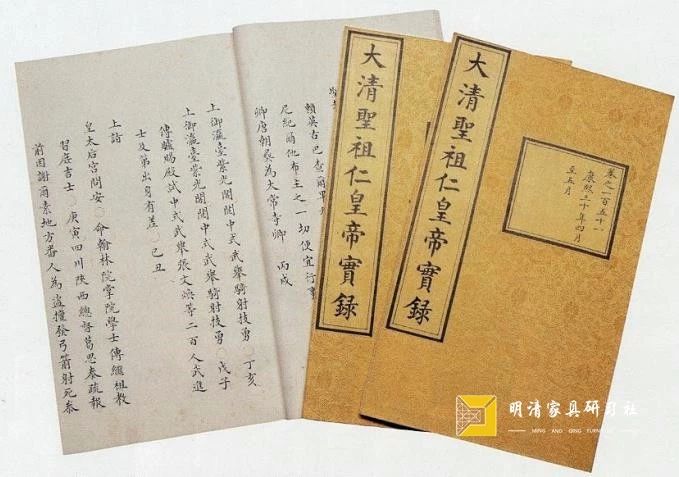 大清聖祖仁皇帝實錄
卷之一百五十一
康熙三十年四月
至五月
大清聖祖仁皇帝實錄
賴英古巴查爾
尼紀爾他布主之一切便宜行事
卿唐朝彝為太常寺卿○丙戌
上御瀛臺紫光閣閱中式武舉騎射技勇○丁亥
上御瀛臺紫光閣閱中式武舉騎射技勇○戊子
傳臚賜殿試中式武舉張文煥等二百人武進
士及第出身有差○己丑
上詣
皇太后宮問安○命翰林院掌院學士傅繼祖教
習庶吉士○庚寅四川陝西總督葛思泰疏報
前因謝爾素地方番人為盜擅發弓箭射死泰
明清家具研习社
MING AND QING